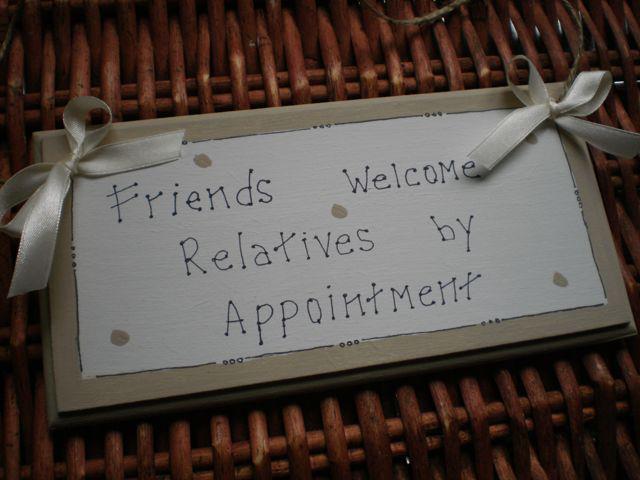 Friends Welcome
Relatives by
Appointment